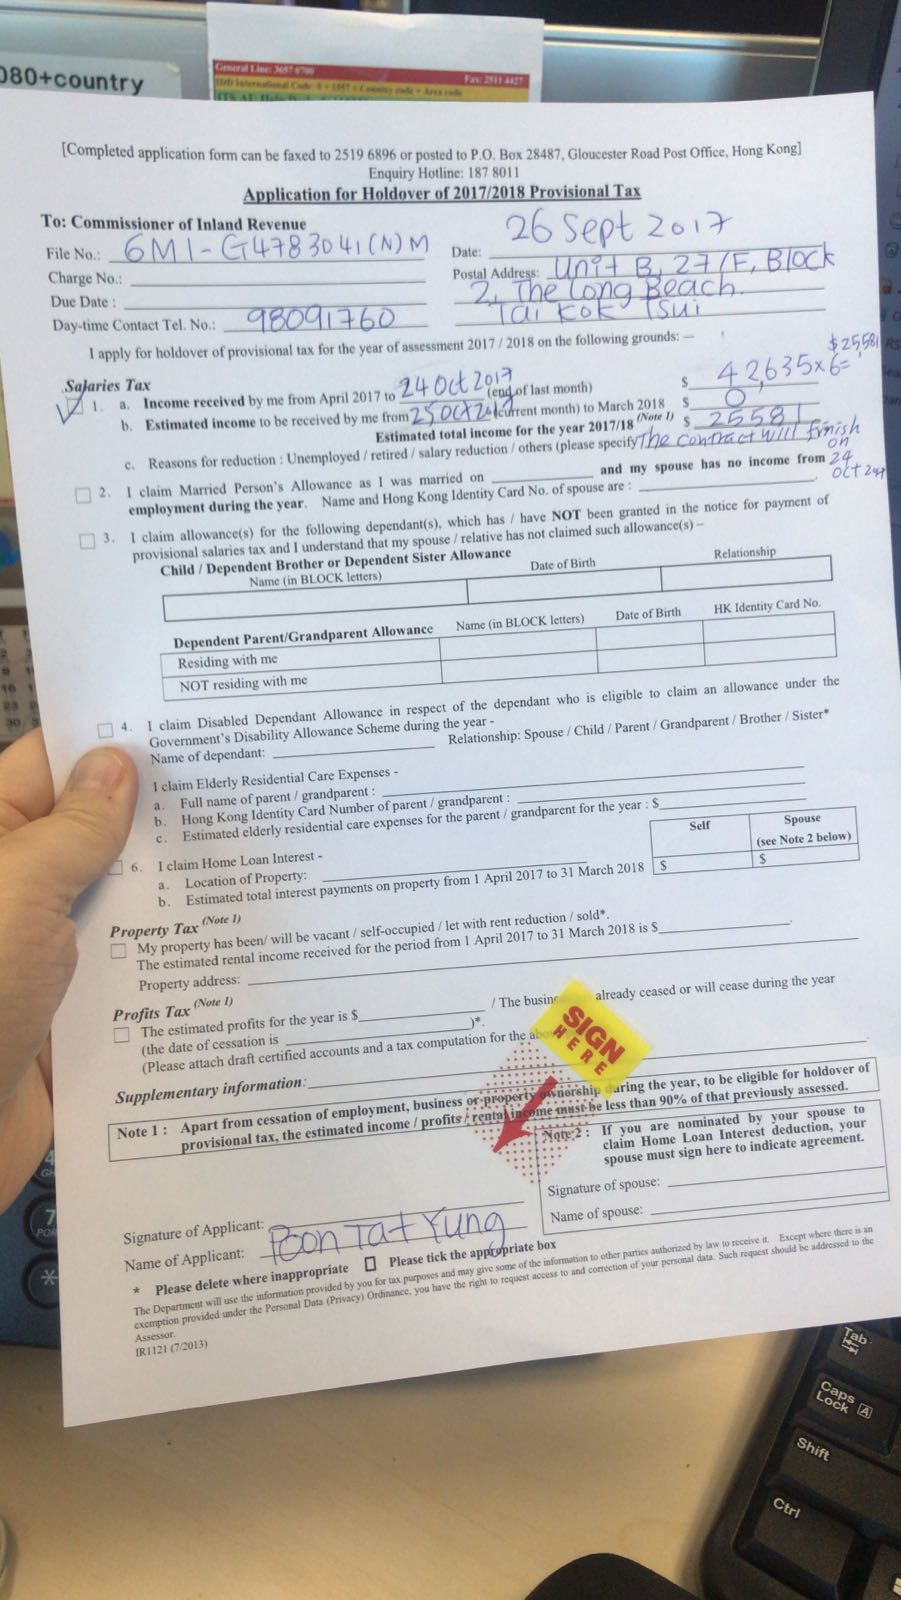 080+country
General Line: 3657 0700
Fax: 2511 4427
[Completed application form can be faxed to 2519 6896 or posted to P.O. Box 28487, Gloucester Road Post Office, Hong Kong]
Enquiry Hotline: 187 8011
Application for Holdover of 2017/2018 Provisional Tax
To: Commissioner of Inland Revenue
File No.: 6M1-G4783041(N)M
Date: 26 Sept 2017
Charge No.:
Postal Address: Unit B, 27/F, Block
2, The Long Beach.
Due Date :
Tai Kok Tsui
Day-time Contact Tel. No.: 98091760
I apply for holdover of provisional tax for the year of assessment 2017 / 2018 on the following grounds: —
Salaries Tax
1. a. Income received by me from April 2017 to 24 Oct 2017 (end of last month) $ 42,635x6= $25,581
b. Estimated income to be received by me from 25 Oct 2017 (current month) to March 2018 $ 0
Estimated total income for the year 2017/18 (Note 1) $ 25581
c. Reasons for reduction : Unemployed / retired / salary reduction / others (please specify The contract will finish on 24 Oct
2. I claim Married Person's Allowance as I was married on and my spouse has no income from
employment during the year. Name and Hong Kong Identity Card No. of spouse are :
3. I claim allowance(s) for the following dependant(s), which has / have NOT been granted in the notice for payment of
provisional salaries tax and I understand that my spouse / relative has not claimed such allowance(s) –
Child / Dependent Brother or Dependent Sister Allowance
Name (in BLOCK letters) Date of Birth Relationship
Dependent Parent/Grandparent Allowance Name (in BLOCK letters) Date of Birth HK Identity Card No.
Residing with me
NOT residing with me
4. I claim Disabled Dependant Allowance in respect of the dependant who is eligible to claim an allowance under the
Government's Disability Allowance Scheme during the year -
Name of dependant: Relationship: Spouse / Child / Parent / Grandparent / Brother / Sister*
I claim Elderly Residential Care Expenses -
a. Full name of parent / grandparent :
b. Hong Kong Identity Card Number of parent / grandparent :
c. Estimated elderly residential care expenses for the parent / grandparent for the year : $
Self Spouse
(see Note 2 below)
6. I claim Home Loan Interest -
a. Location of Property:
b. Estimated total interest payments on property from 1 April 2017 to 31 March 2018 $ $
Property Tax (Note 1)
My property has been/ will be vacant / self-occupied / let with rent reduction / sold*.
The estimated rental income received for the period from 1 April 2017 to 31 March 2018 is $
Property address:
Profits Tax (Note 1)
The estimated profits for the year is $ / The busin already ceased or will cease during the year
(the date of cessation is )*.
(Please attach draft certified accounts and a tax computation for the abo
SIGN
HERE
Supplementary information:
Note 1 : Apart from cessation of employment, business or property ownership during the year, to be eligible for holdover of
provisional tax, the estimated income / profits / rental income must be less than 90% of that previously assessed.
Note 2 : If you are nominated by your spouse to
claim Home Loan Interest deduction, your
spouse must sign here to indicate agreement.
Signature of spouse:
Name of spouse:
Signature of Applicant:
Name of Applicant: Poon Tat Yung
* Please delete where inappropriate Please tick the appropriate box
The Department will use the information provided by you for tax purposes and may give some of the information to other parties authorized by law to receive it. Except where there is an
exemption provided under the Personal Data (Privacy) Ordinance, you have the right to request access to and correction of your personal data. Such request should be addressed to the
Assessor.
IR1121 (7/2013)
Tab
Caps
Lock A
Shift
Ctrl